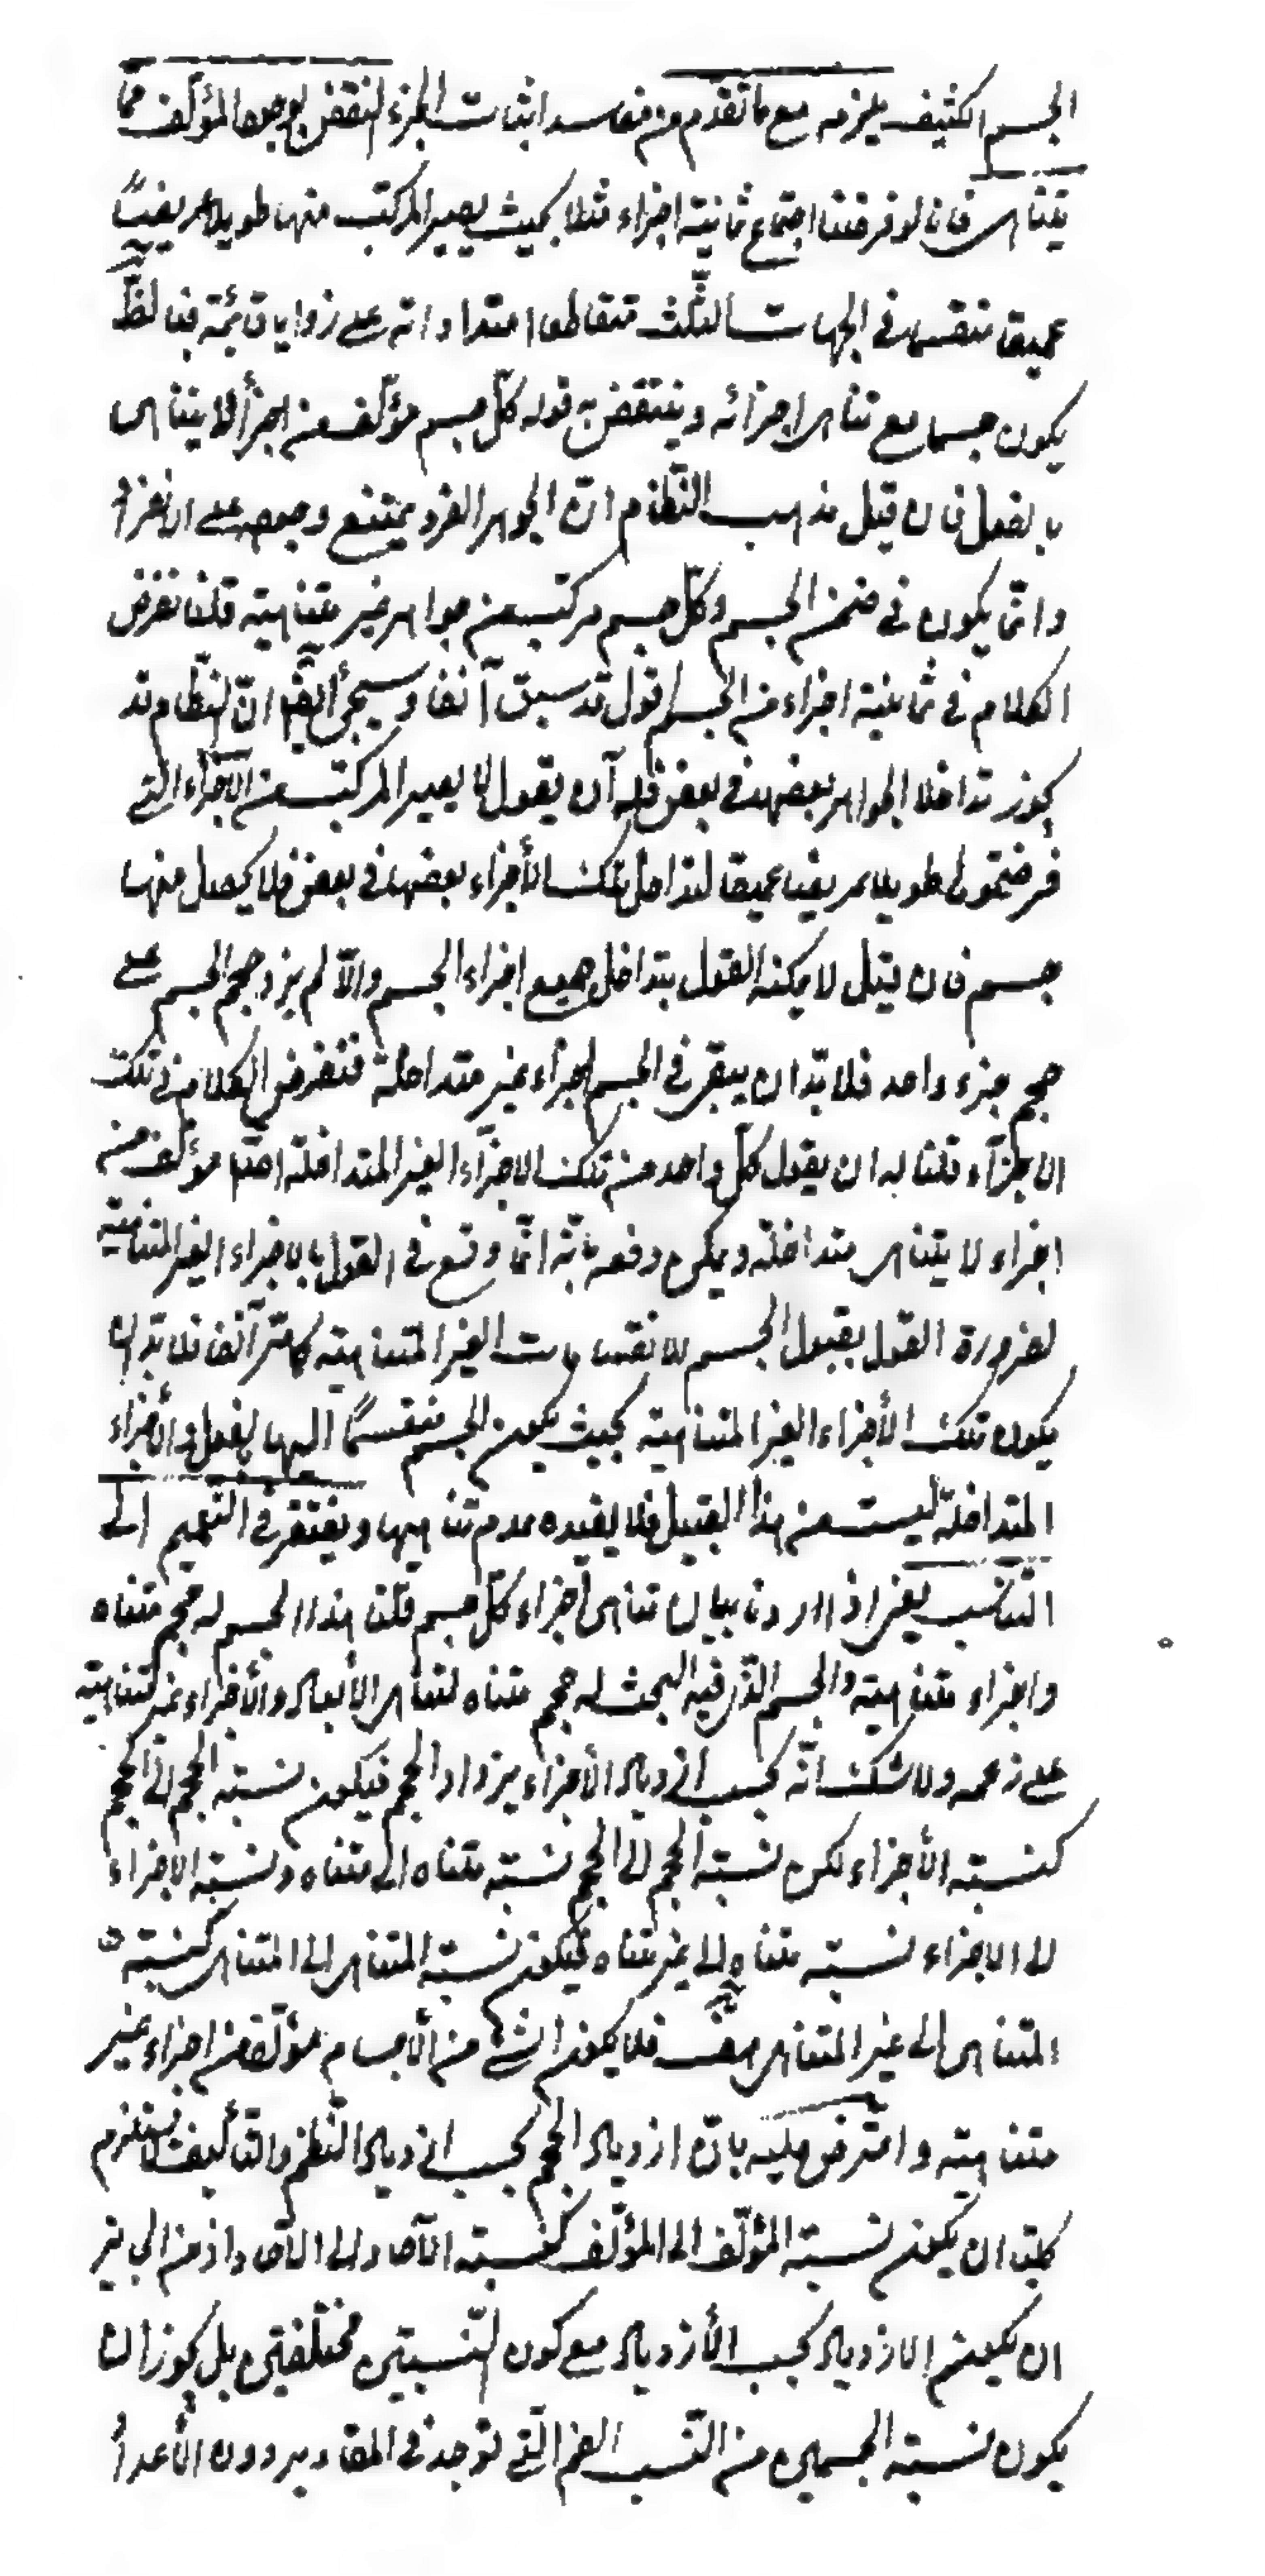 الجسم الكثيف يلزمه مع ما تقدم من مفاسد اثبات الجزء النقض بوجود المؤلف مما
يتناهى فانا لو فرضنا اجتماع ثمانية اجزاء مثلا بحيث يصير المركب منها طويلا عريضاً
عميقا منقسما في الجهات الثلث متقاطعا امتداداته على زوايا قائمة فبالظ
يكون جسما مع تناهى اجزائه وينتقض به قوله كل جسم مؤلف من اجزاء لا يتناهى
بالفعل فان قيل مذهب النظام ان الجوهر الفرد يمتنع وجوده على انفراده
وانما يكون في ضمن الجسم وكل جسم مركب من جواهر غير متناهية قلنا نفرض
الكلام في ثمانية اجزاء من الجسم اقول قد سبق آنفا وسيجئ ايضا ان النظام قد
يجوز تداخل الجواهر بعضها في بعض فله ان يقول لا يصير المركب من الاجزاء التي
فرضتموها طويلا عريضا عميقا لتداخل تلك الأجزاء بعضها في بعض فلا يحصل منها
جسم فان قيل لا يمكنه القول بتداخل جميع اجزاء الجسم والّا لم يزد حجم الجسم على
حجم جزء واحد فلا بدّ ان يبقى في الجسم اجزاء غير متداخلة فنفرض الكلام في تلك
الاجزاء قلنا له ان يقول كل واحد من تلك الاجزاء الغير المتداخلة ايضا مؤلف من
اجزاء لا يتناهى متداخلة ويمكن دفعه بانه انما وقع في القول بالاجزاء الغير المتناهية
لضرورة القول بقبول الجسم الانقسامات الغير المتناهية كما مر آنفا فلا بد ان
يكون تلك الأجزاء الغير المتناهية بحيث يكون الجسم منقسماً اليها بالفعل والأجزاء
المتداخلة ليست من هذا القبيل فلا يفيده عدم تناهيها ويفتقر في التعميم الى
التناسب يعني اذا اردنا بيان تناهى اجزاء كل جسم قلنا هذا الجسم له حجم متناه
واجزاء متناهية والجسم الذي فيه البحث له حجم متناه لتناهى الأبعاد والأجزاء غير متناهية
على زعمه ولا شك انّه بحسب ازدياد الأجزاء يزداد الحجم فيكون نسبة الحجم الى الحجم
كنسبة الأجزاء لكن نسبة الحجم الى الحجم نسبة متناه الى متناه ونسبة الاجزاء
الى الاجزاء نسبة متناه الى غير متناه فيكون نسبة المتناهى الى المتناهى كنسبة
المتناهى الى غير المتناهى هف فلا يكون شئ من الأجسام مؤلفا من اجزاء غير
متناهية واعترض عليه بان ازدياد الحجم بحسب ازدياد النظم والتأليف لا يستلزم
كليا ان يكون نسبة المؤلّف الى المؤلّف كنسبة الآحاد الى الآحاد اذ من الجائز
ان يكون الازدياد بحسب الأزدياد مع كون النسبتين مختلفتين بل يجوز ان
يكون نسبة الجسمين من النّسب الصم الّتي توجد في المقادير دون الأعداد